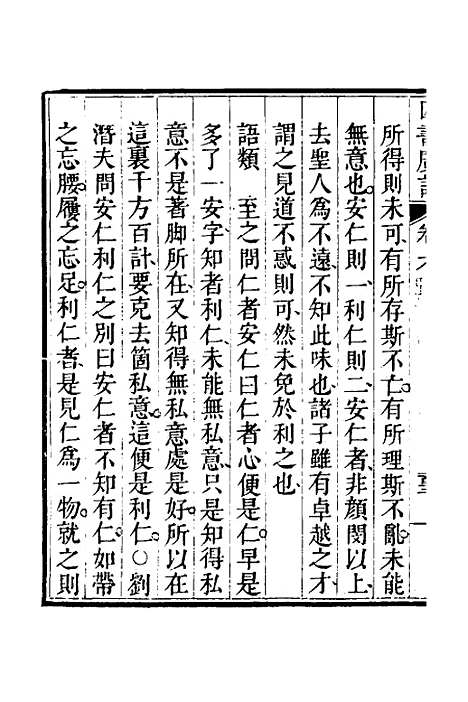 所得則未可有所存斯不亡有所理斯不亂未能
無意也安仁則一利仁則二安仁者非顏閔以上
去聖人爲不遠不知此味也諸子雖有卓越之才
謂之見道不惑則可然未免於利之也
語類　至之問仁者安仁曰仁者心便是仁早是
多了一安字知者利仁未能無私意只是知得私
意不是著脚所在又知得無私意處是好所以在
這裏千方百計要克去箇私意這便是利仁○劉
潛夫問安仁利仁之別曰安仁者不知有仁如帶
之忘腰屨之忘足利仁者是見仁爲一物就之則